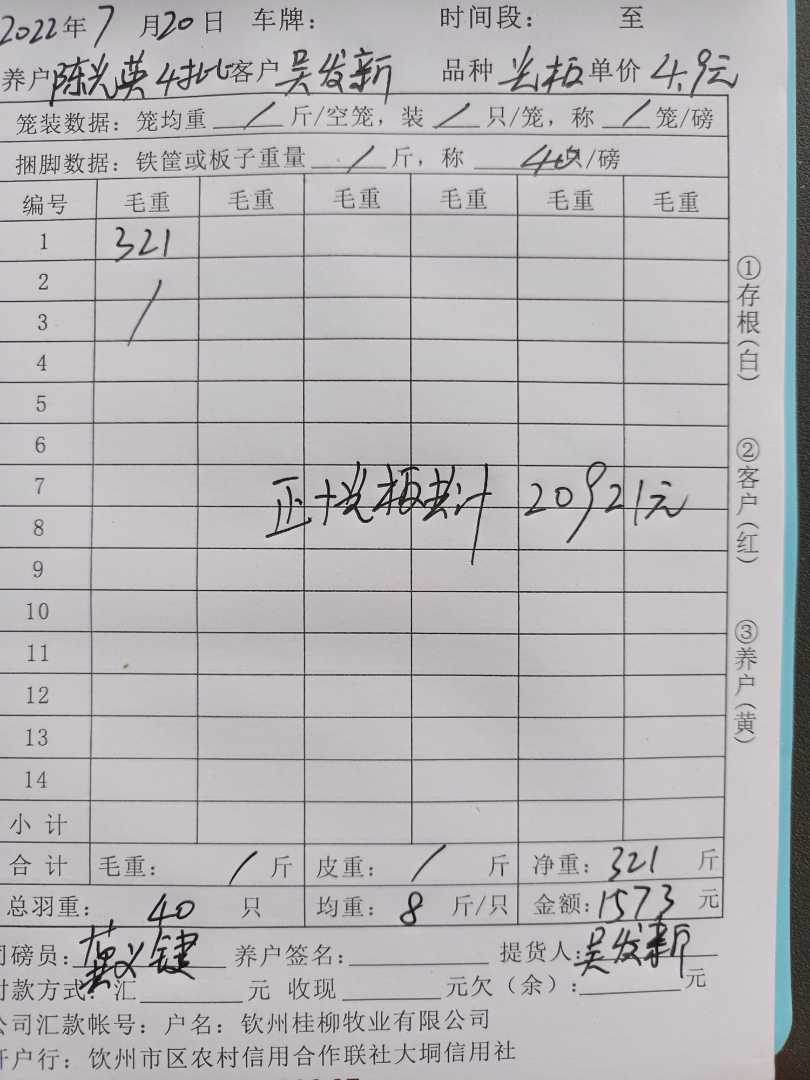 2022年7月20日 车牌： 时间段： 至
养户陈光英4批客户吴发新 品种光板单价4.9元
笼装数据：笼均重/斤/空笼，装/只/笼，称/笼/磅
捆脚数据：铁筐或板子重量/斤，称40只/磅
编号 毛重 毛重 毛重 毛重 毛重 毛重
1 321
2 /
3
4
5
6
7
正+光板共计 20921元
8
9
10
11
12
13
14
小计
合计 毛重：/斤 皮重：/斤 净重：321斤
总羽重：40只 均重：8斤/只 金额：1573元
司磅员： 养户签名： 提货人：吴发新
付款方式：汇 元 收现 元欠（余）： 元
公司汇款帐号：户名：钦州桂柳牧业有限公司
开户行：钦州市区农村信用合作联社大垌信用社
①存根(白)
②客户(红)
③养户(黄)